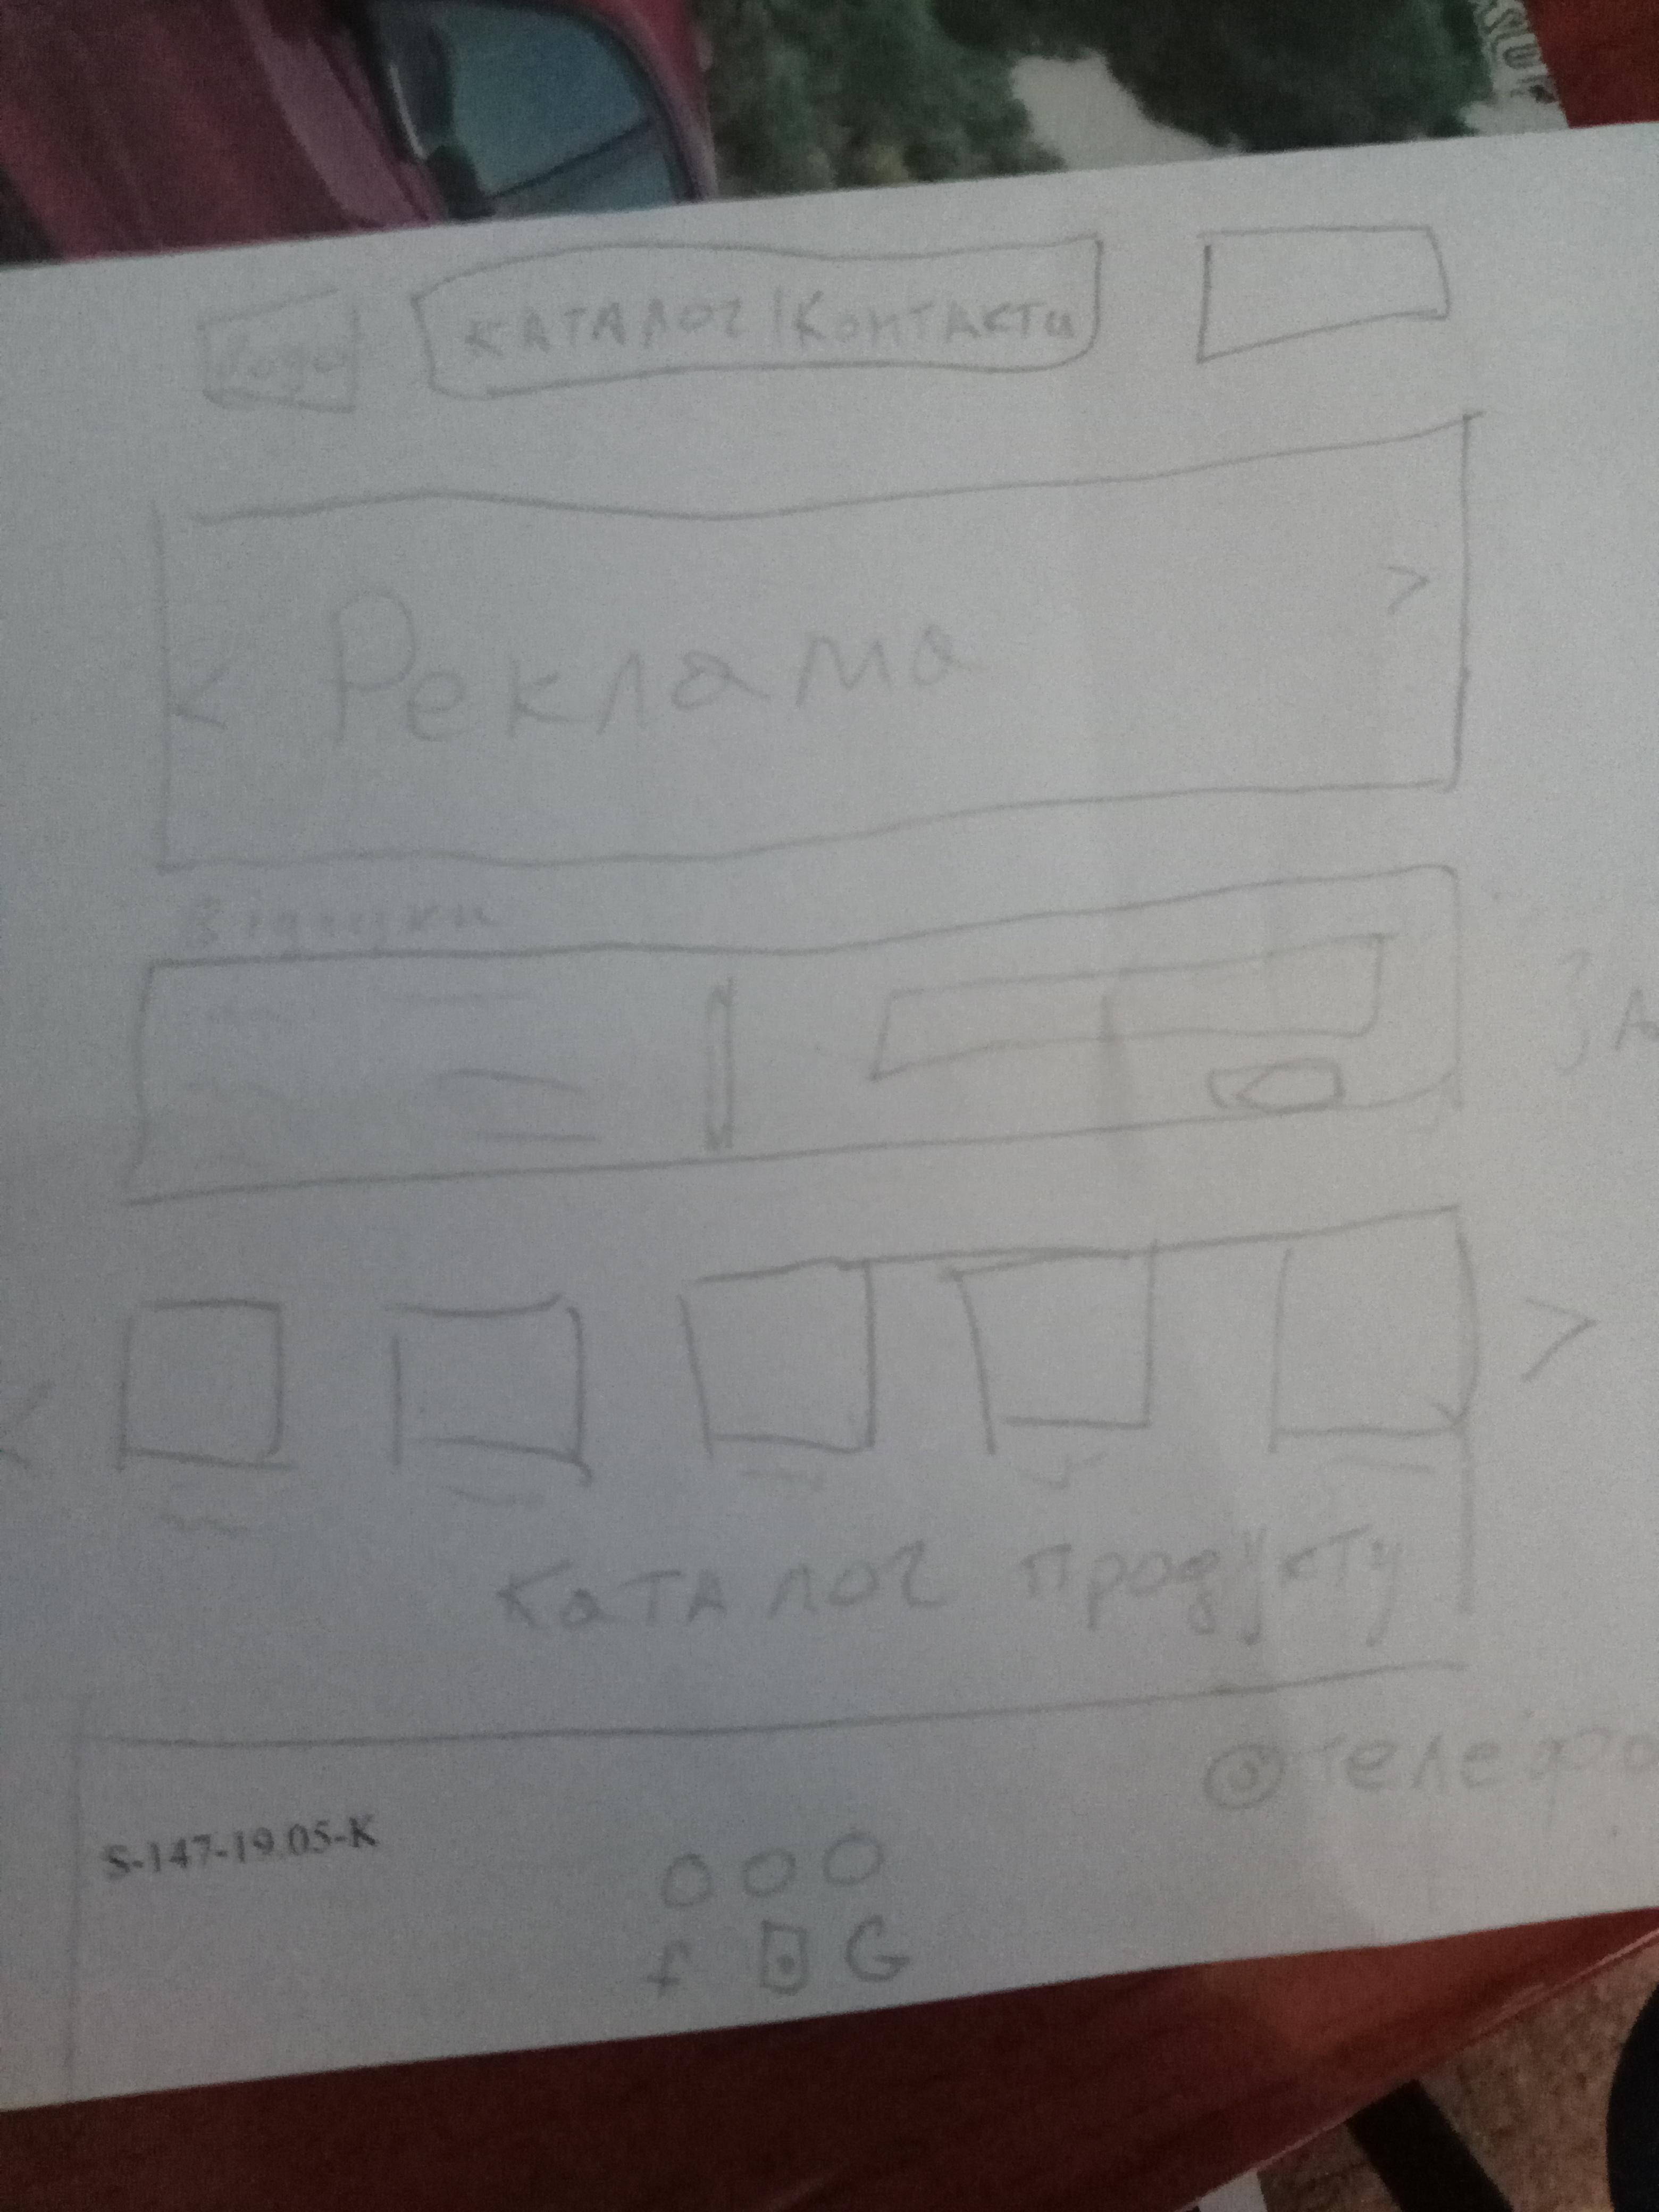 Лого КАТАЛОГ | Контакти
< Реклама >
Відгуки
< >
Каталог продукту
S-147-19.05-K
f G